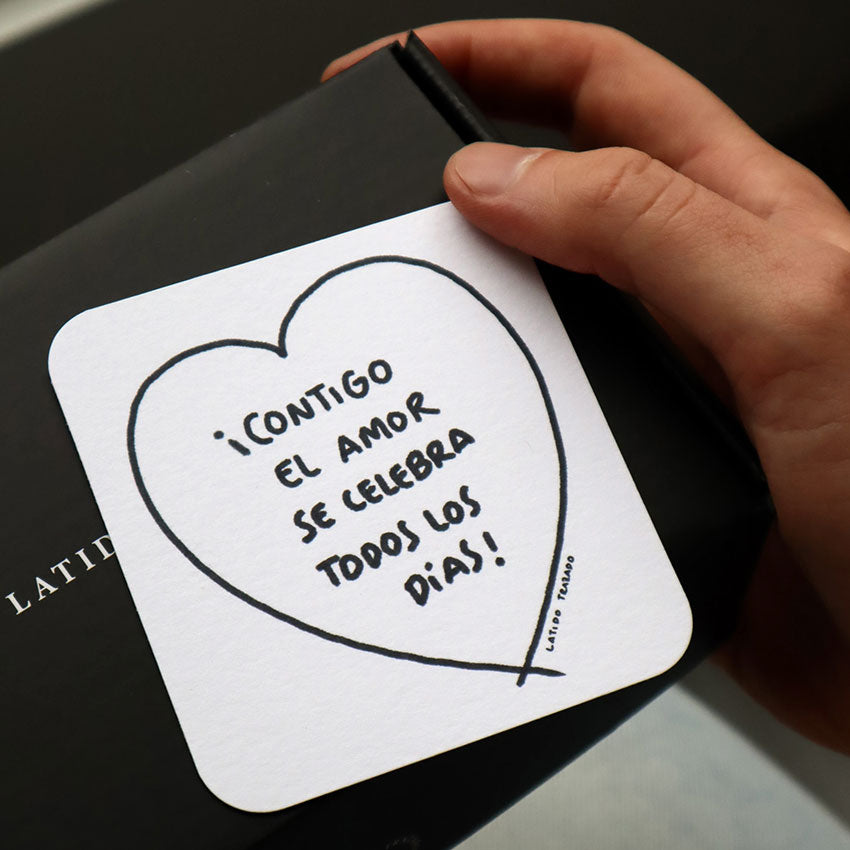 ¡CONTIGO
EL AMOR
SE CELEBRA
TODOS LOS
DÍAS!
LATIDO TRAZADO
LATID